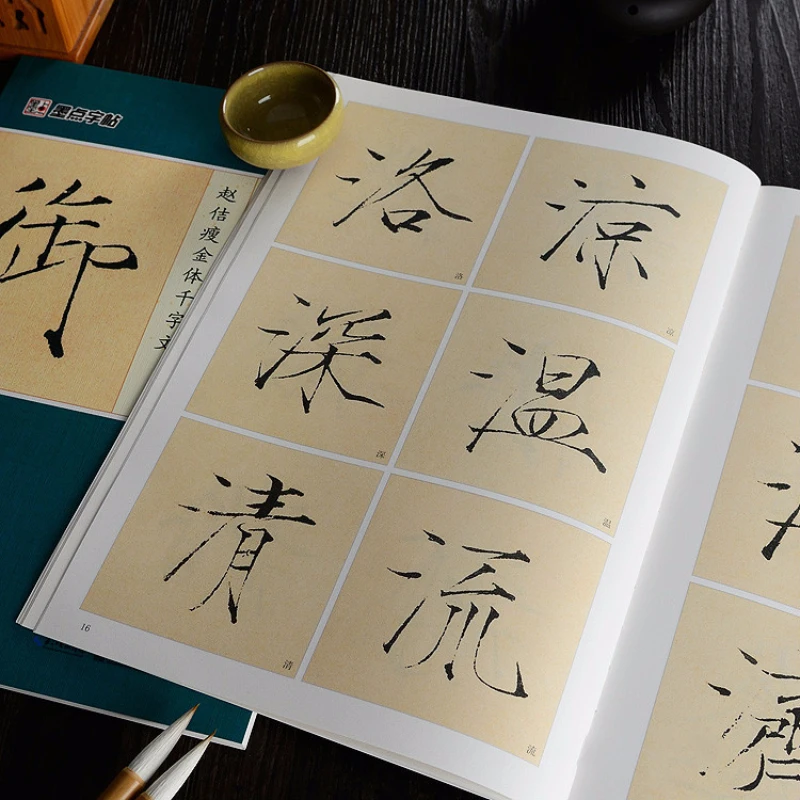 墨点字帖
御
赵佶瘦金体千字文
洛
洛
涼
涼
深
深
温
温
清
清
流
流
16
濟